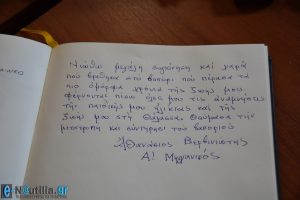 Νιώθω μεγάλη συγκίνηση και χαρά
που βρέθηκα στο βαπόρι που πέρασα τα
πιο όμορφα χρόνια της ζωής μου,
φέρνοντας πίσω όλες μου τις αναμνήσεις
της παιδικής μου ηλικίας και της
ζωή μου στη θάλασσα. Θαύμασα την
μετατροπή και συντήρηση του βαποριού
Αθανάσιος
Α' Μηχανικός
e-Nautilia.gr